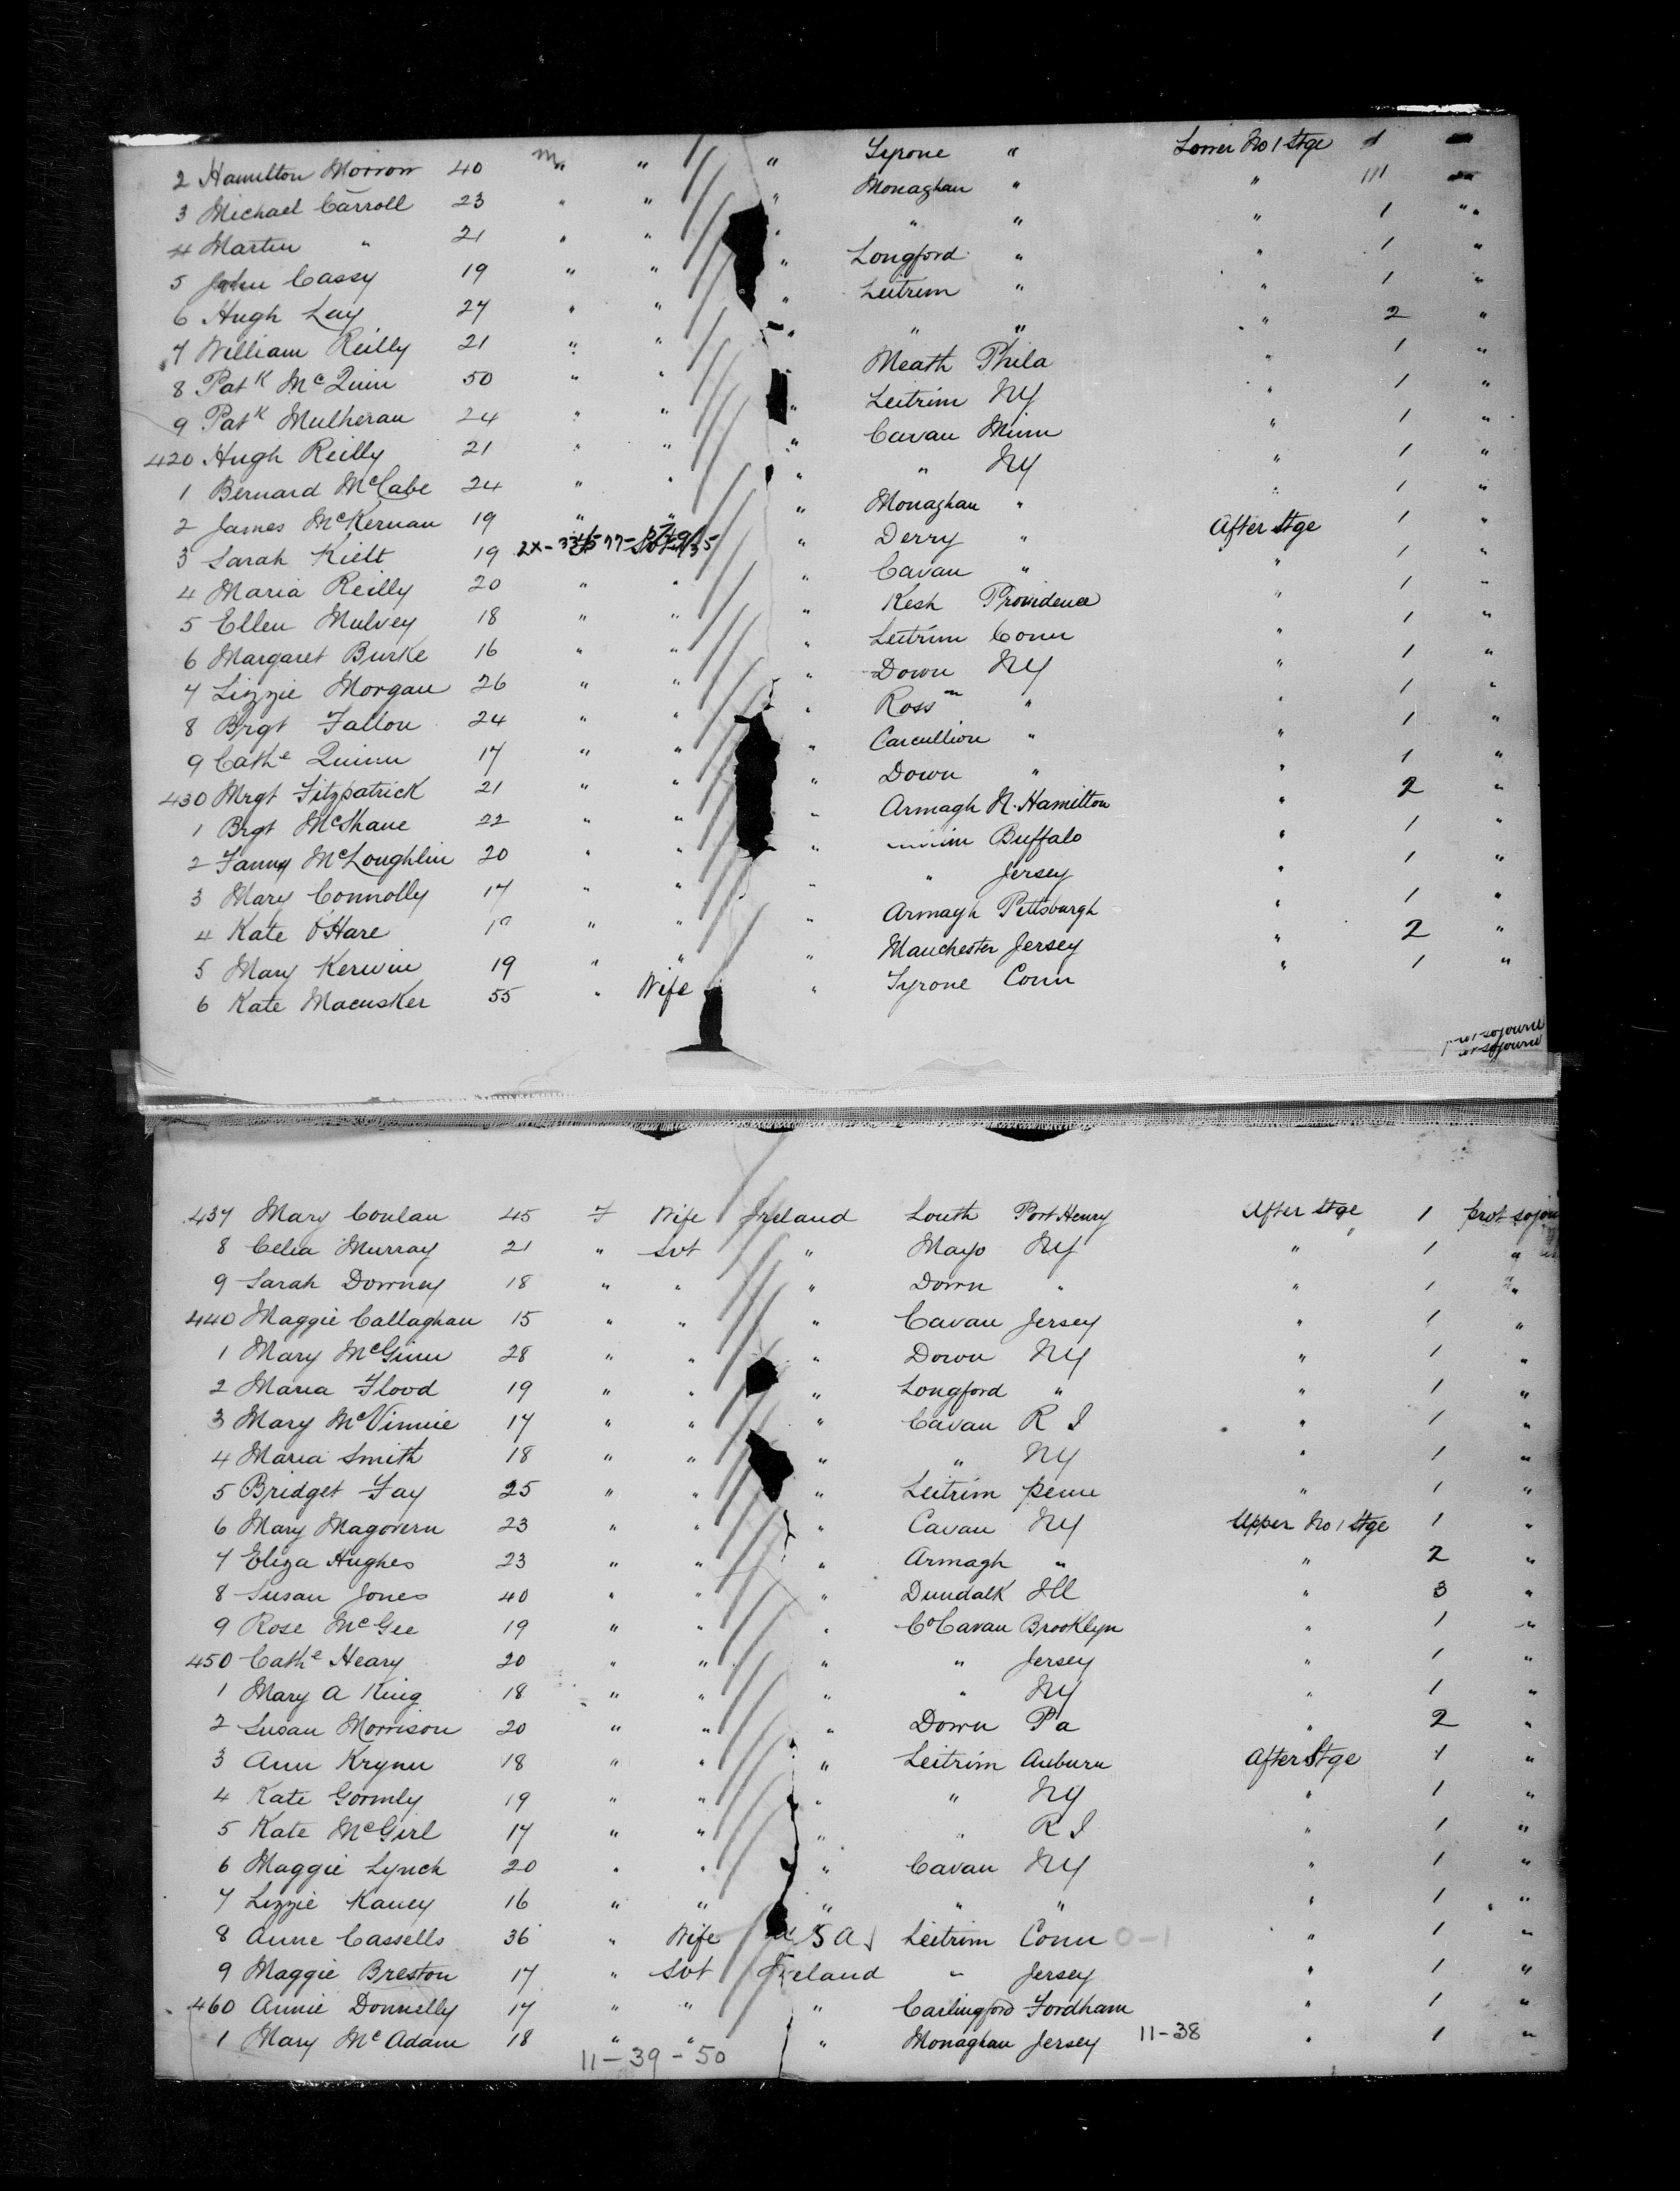 2 Hamilton Morrow 40 m " " " Tyrone " Lower No 1 Stge 1
3 Michael Carroll 23 " " " Monaghan " " 111
4 Martin " 21 " " " " " 1 "
5 John Cassy 19 " " " Longford " " 1 "
6 Hugh Lay 24 " " " Leitrim " " 1 "
7 William Reilly 21 " " " " " " 2 "
8 Patk McQuin 50 " " Meath Phila " 1 "
9 Patk Mulheran 24 " " " Leitrim NY " 1 "
420 Hugh Reilly 21 " " " Cavan Minn " 1 "
1 Bernard McCabe 24 " " " " NY " 1 "
2 James McKernan 19 " " " Monaghan " " 1 "
3 Sarah Kielt 19 " Derry " After Stge 1 "
4 Maria Reilly 20 " " " Cavan " " 1 "
5 Ellen Mulvey 18 " " " Kesh Providence " 1 "
6 Margaret Burke 16 " " " Leitrim Conn " 1 "
7 Lizzie Morgan 26 " " " Down NY " 1 "
8 Brgt Fallon 24 " " " Rossm " " 1 "
9 Cathe Quinn 17 " " " Carcullion " " 1 "
430 Mrgt Fitzpatrick 21 " " " Down " " 1 "
1 Brgt McShane 22 " " " Armagh N. Hamilton " 2 "
2 Fanny McLoughlin 20 " " " Buffalo " 1 "
3 Mary Connolly 17 " " " " Jersey " 1 "
4 Kate O'Hare " " " Armagh Pittsburgh " 1 "
5 Mary Kerwin 19 " " " Manchester Jersey " 2 "
6 Kate Macusker 55 " Wife " Tyrone Conn " 1 "
sojourn
sojourn
437 Mary Conlan 45 F Wife Ireland Louth Port Henry After Stge 1 prot sojou
8 Celia Murray 21 " Svt " Mayo NY " 1 "
9 Sarah Downey 18 " " " Down " " 1 "
440 Maggie Callaghan 15 " " " Cavan Jersey " 1 "
1 Mary McGinn 28 " " " Down NY " 1 "
2 Maria Flood 19 " " " Longford " " 1 "
3 Mary McVinnie 17 " " " Cavan R I " 1 "
4 Maria Smith 18 " " " " NY " 1 "
5 Bridget Fay 25 " " " Leitrim Penn " 1 "
6 Mary Magovern 23 " " " Cavan NY Upper No 1 Stge 1 "
7 Eliza Hughes 23 " " " Armagh " " 2 "
8 Susan Jones 40 " " " Dundalk Ill " 3 "
9 Rose McGee 19 " " " Co Cavan Brooklyn " 1 "
450 Cathe Heary 20 " " " " Jersey " 1 "
1 Mary A King 18 " " " " NY " 1 "
2 Susan Morrison 20 " " " Down Pa " 2 "
3 Ann Krynn 18 " " " Leitrim Auburn After Stge 1 "
4 Kate Gormly 19 " " " " NY " 1 "
5 Kate McGirl 17 " " " " R I " 1 "
6 Maggie Lynch 20 " " " Cavan NY " 1 "
7 Lizzie Kaney 16 " " " " " " 1 "
8 Anne Cassells 36 " Wife U S A Leitrim Conn 0-1 " 1 "
9 Maggie Breston 17 " Svt Ireland " Jersey " 1 "
460 Annie Donnelly 17 " " " Carlingford Fordham " 1 "
1 Mary McAdam 18 " " " Monaghan Jersey 11-38 " 1 "
11-39-50